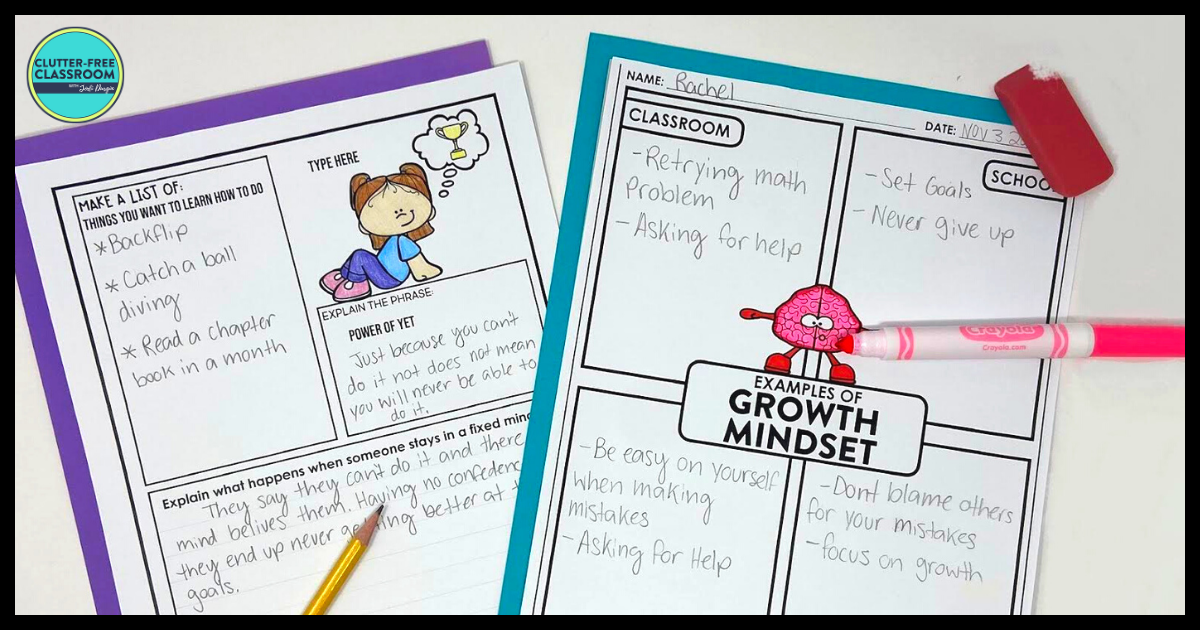 CLUTTER-FREE
CLASSROOM
WITH Jodi Durgin
MAKE A LIST OF:
THINGS YOU WANT TO LEARN HOW TO DO
*Backflip
* Catch a ball
diving
* Read a chapter
book in a month
TYPE HERE
EXPLAIN THE PHRASE:
POWER OF YET
Just because you can't
do it not does not mean
you will never be able to
do it.
Explain what happens when someone stays in a fixed
They say they can't do it and there
mind belives them. Having no
they end up never better at
goals.
NAME: Rachel
DATE: NOV 3
CLASSROOM
-Retrying math
Problem
-Asking for help
SCHOO
-Set Goals
- Never give up
EXAMPLES OF
GROWTH
MINDSET
-Be easy on yourself
when making
mistakes
-Asking for Help
-Dont blame others
for your mistakes
-focus on growth
Crayola
Crayola.com